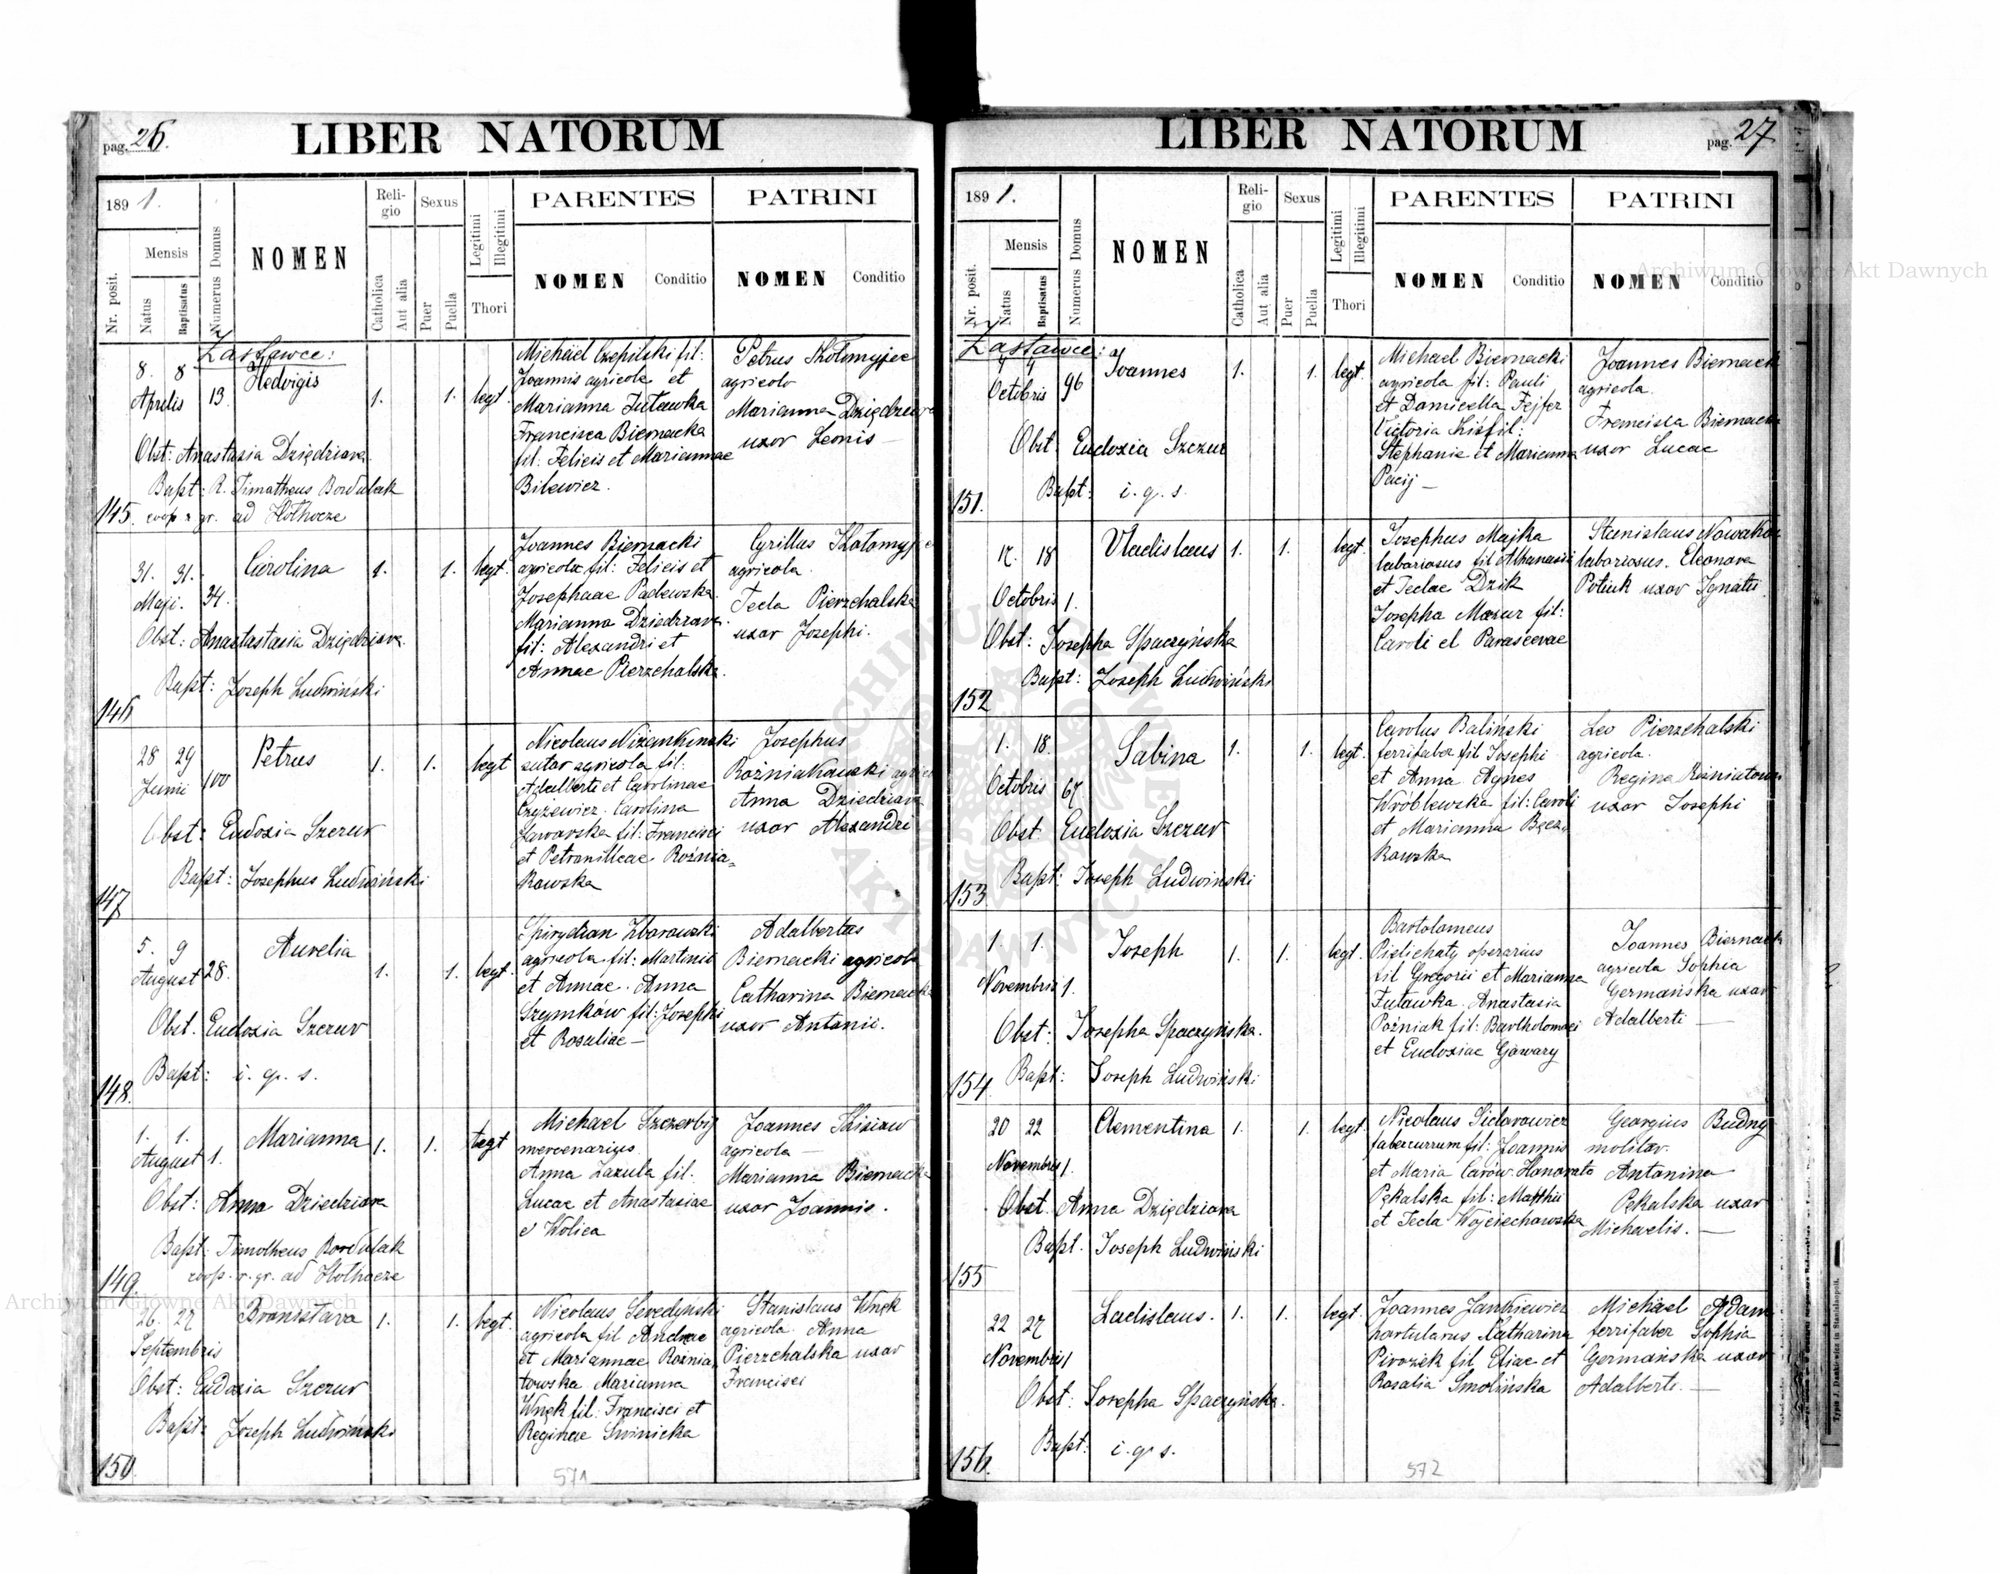 pag. 26.
LIBER NATORUM
189 1.
Nr. posit.
Mensis
Natus
Baptisatus
Numerus Domus
NOMEN
Religio
Catholica
Aut alia
Sexus
Puer
Puella
Legitimi
Illegitimi
Thori
PARENTES
NOMEN
Conditio
PATRINI
NOMEN
Conditio
Zastawce:
8. 8
Aprilis 13.
Hedvigis
1. 1. legt.
Michael Czepilski fil:
Joannis agricola et
Marianna Tutawka
Francisca Biernacka
fil: Felicis et Mariannae
Bilewicz.
Petrus Kołomyjec
agricola
Marianna Dziędziora
uxor Leonis —
Obst: Anastasia Dziędziora
Bapt: R. Timotheus Bordulak
coop r. gr. ad Hołhocze
145.
31. 31.
Maji. 34.
Carolina
1. 1. legt.
Joannes Biernacki
agricola fil: Felicis et
Josephaae Padewska.
Marianna Dziedzrava
fil: Alexandri et
Annae Pierzchalska.
Cyrillus Kołomyjec
agricola.
Tecla Pierzchalska
uxor Josephi.
Obst: Anastastasia Dziędziora.
Bapt: Joseph Ludwiński
146
28 29
Junii 100
Petrus
1. 1. legt
Nicolaus Niżankowski
sutor agricola fil:
Adalberti et Carolinae
Czyżewicz. Carolina
fil: Francisci
et Petronillae Rożnia=
kowska
Josephus
Rożniakowski agricola
Anna Dziedziora
uxor Alexandri
Obst: Eudoxia Szczur
Bapt: Josephus Ludwiński
147
5. 9
August 28.
Aurelia
1. 1. legt.
Spirydion Zborowski
agricola fil: Martinii
et Annae. Anna
Szymków fil: Josephi
et Rosaliae —
Adalbertus
Biernacki agricola
Catharina Biernacka
uxor Antonii.
Obst. Eudoxia Szczur
Bapt: i. q. s.
148.
1. 1.
August 1.
Marianna
1. 1. legt
Michael Szczerbij
mercenarius.
Anna Zazula fil.
Lucae et Anastasiae
e Wolica
Joannes
agricola —
Marianna Biernacka
uxor Joannis.
Obst: Anna Dziedziora
Bapt: Timotheus Bordulak
coop. r. gr. ad Hołhocze
149.
26. 27
Septembris
Bronisłava
1. 1. legt.
Nicolaus Seredyński
agricola fil Andreae
et Mariannae Rożnia
towska Marianna
Wnęk fil: Francisci et
Reginae Swinicka
Stanislaus Wnęk
agricola. Anna
Pierzchalska uxor
Francisci
Obst: Eudoxia Szczur
Bapt: Joseph Ludwiński
150
571
LIBER NATORUM
pag. 27
189 1.
Nr. posit.
Mensis
Natus
Baptisatus
Numerus Domus
NOMEN
Religio
Catholica
Aut alia
Sexus
Puer
Puella
Legitimi
Illegitimi
Thori
PARENTES
NOMEN
Conditio
PATRINI
NOMEN
Conditio
Zastawce:
4 4
Octobris 96
Joannes
1. 1. legt.
Michael Biernacki
agricola fil: Pauli
et Domicella Fejfer
Victoria Kisfil:
Stephanie et Marianna
Pacij —
Joannes Biernacki
agricola.
Francisca Biernacka
uxor Lucae
Obst. Eudoxia Szczur
Bapt: i. q. s.
151.
17. 18
Octobris 1.
Vladislaus
1. 1. legt.
Josephus Majka
laboriosus fil Athanasii
et Teclae Dzik
Josepha Mazur fil:
Caroli et Parascevae
Stanislaus
laboriosus. Eleonora
Potiuk uxor Ignatii.
Obst: Josepha Spaczyńska
Bapt: Joseph Ludwiński
152
1. 18.
Octobris 67
Sabina
1. 1. legt.
Carolus Baliński
ferrifaber fil Josephi
et Anna Agnes
Wróblewska fil: Caroli
et Marianna Bącz=
kowska
Leo Pierzchalski
agricola.
Regina
uxor Josephi
Obst Eudoxia Szczur
Bapt: Joseph Ludwinski
153
1. 1.
Novembris 1.
Joseph
1. 1. legt.
Bartolomeus
Pielichaty operarius
fil Gregorii et Marianna
Tutawka. Anastasia
Poźniak fil: Bartholomaei
et Eudoxiae Gawary
Joannes Biernacki
agricola Sophia
Germańska uxor
Adalberti —
Obst: Josepha Spaczyńska.
Bapt: Joseph Ludwiński
154
20 22
Novembris 1.
Clementina
1. 1. legt.
Nicolaus Siclarowicz
fabercurrum fil: Joannis
et Maria Carów. Honorata
Pękalska fil: Matthii
et Tecla Wojciechowska
Georgius Budnij
molitor.
Antonina
Pękalska uxor
Michaelis. —
Obst. Anna Dziędziora
Bapt. Joseph Ludwiński
155
22 27
Novembris 1
Ladislaus.
1. 1. legt.
Joannes Jankiewicz
hortularus Katharina
Pirożek fil Eliae et
Rosalia Smolińska
Michael Adam
ferrifaber Sophia
Germańska uxor
Adalberti. —
Obst: Josepha Spaczyńska.
Bapt: i. q. s.
156.
572
Archiwum Główne Akt Dawnych
Archiwum Główne Akt Dawnych
ARCHIWUM GŁÓWNE AKT DAWNYCH